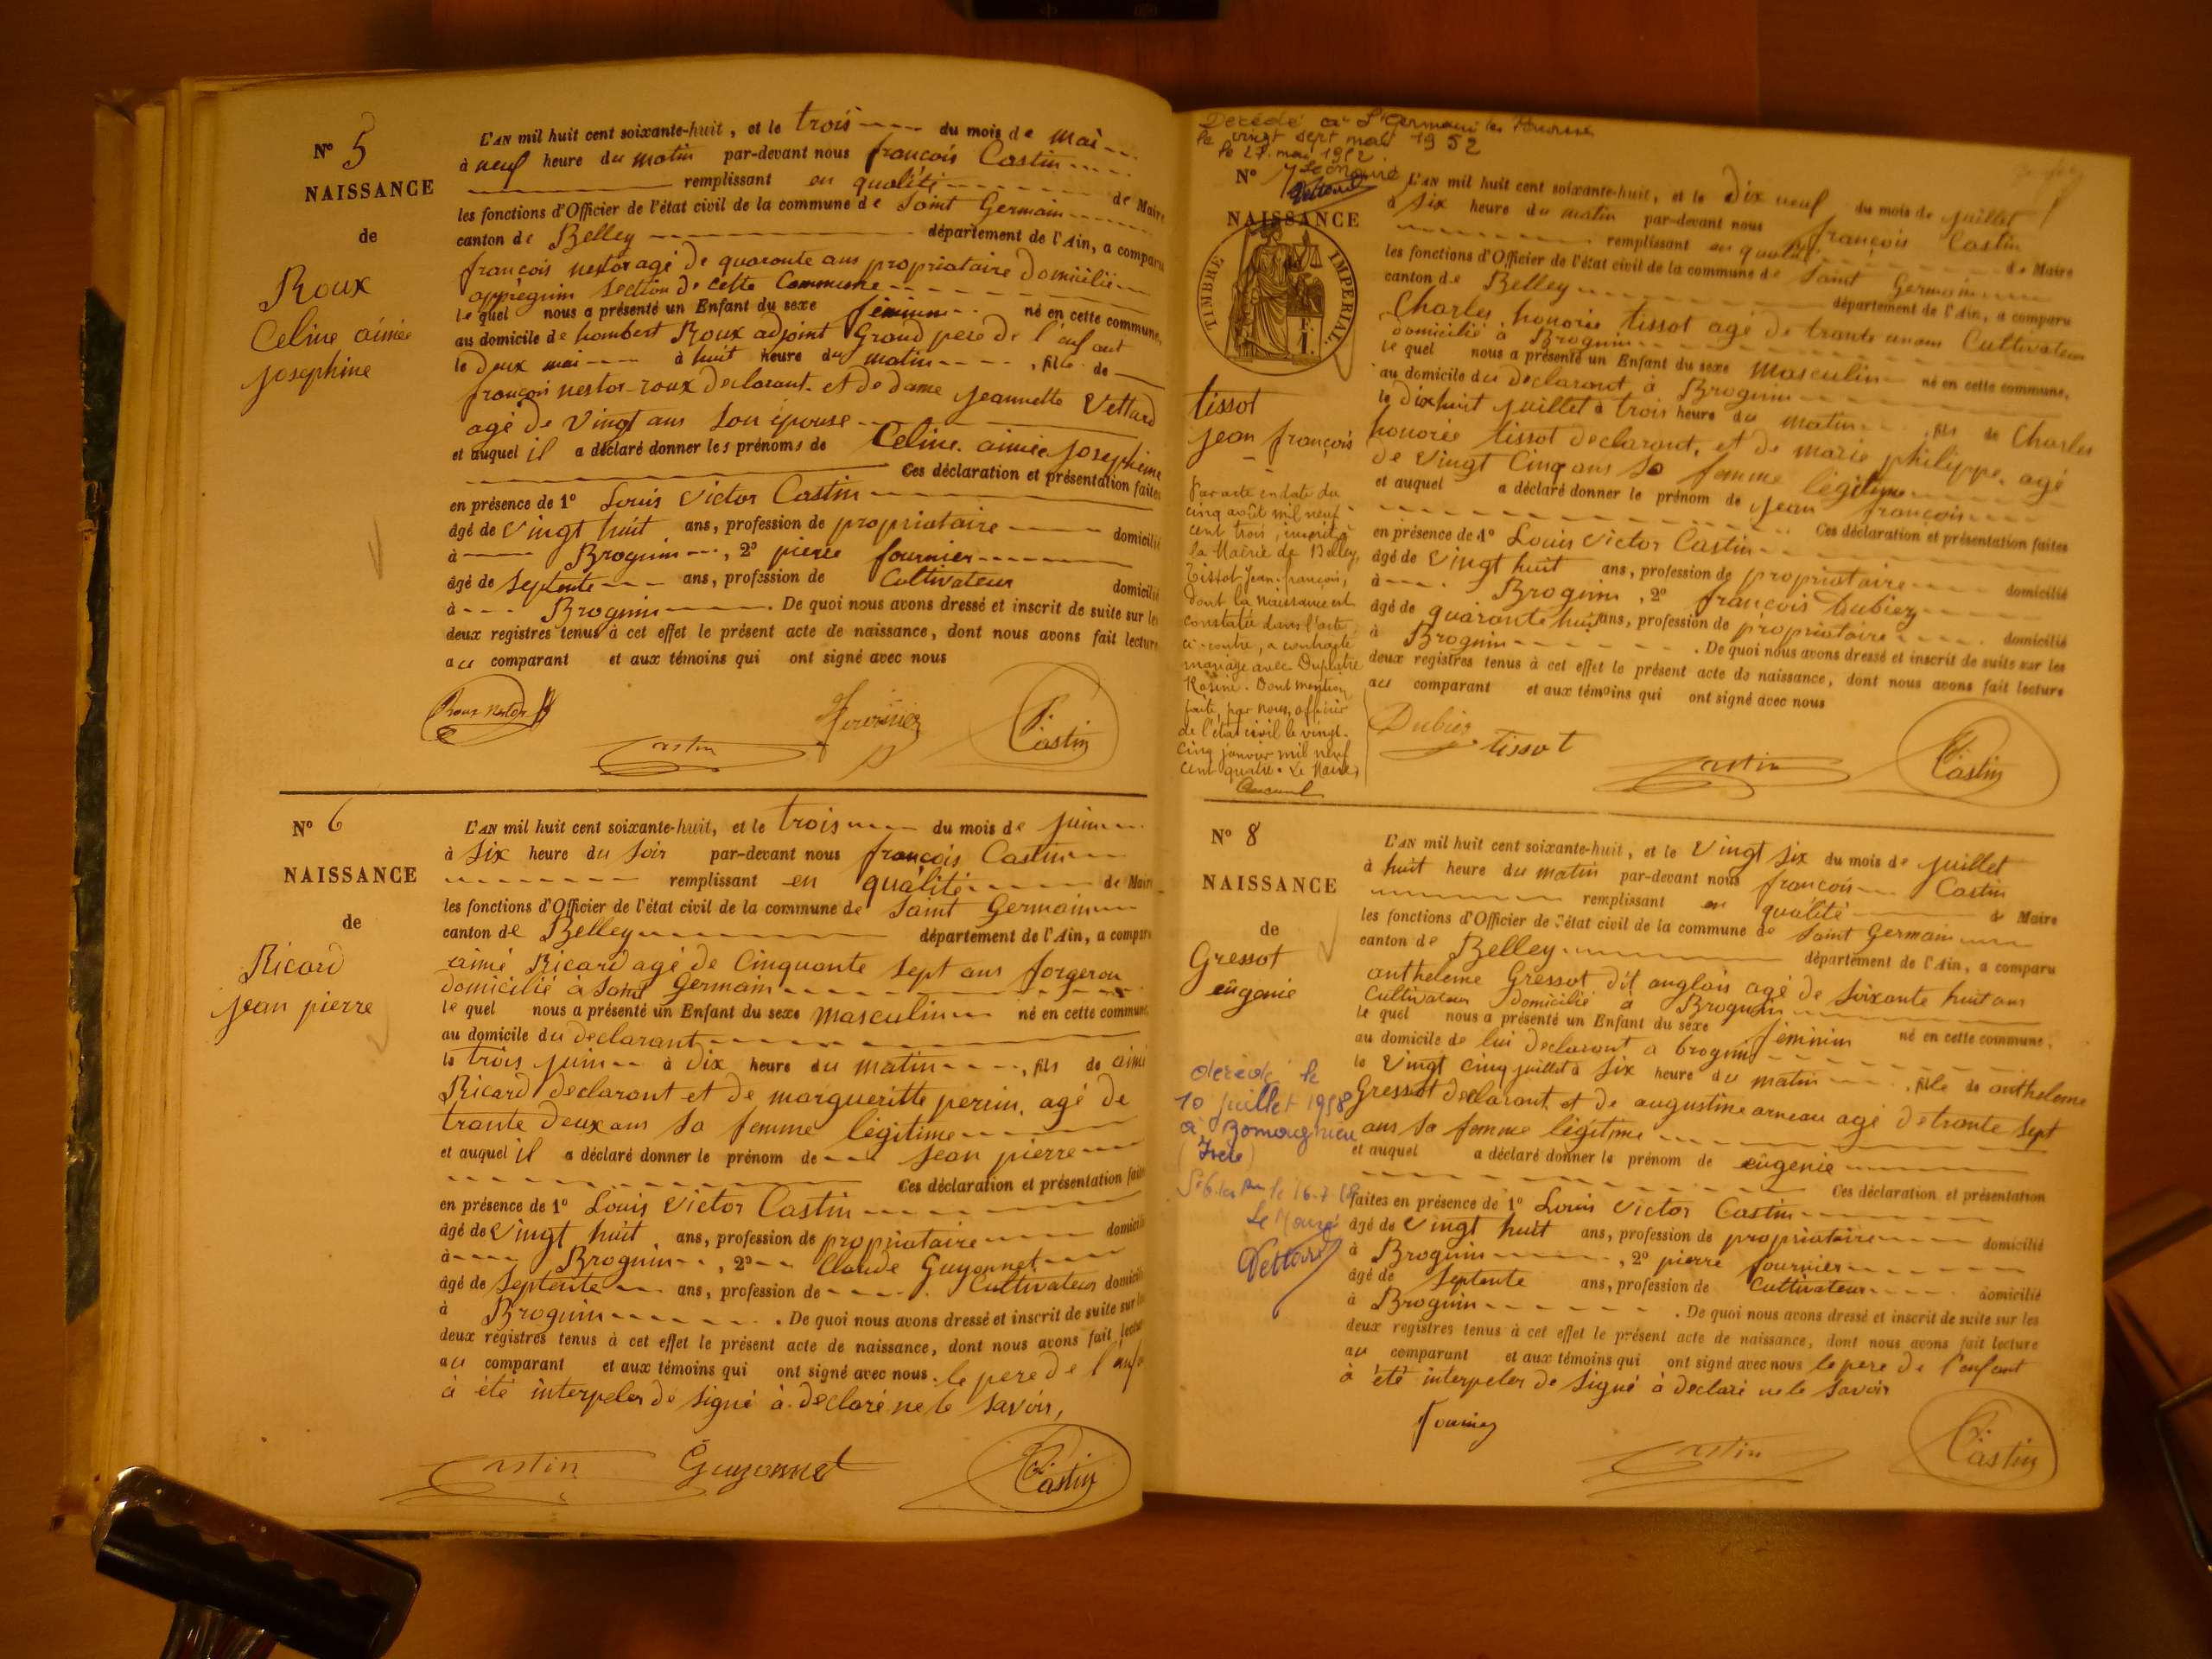 N° 5
NAISSANCE
de
Roux
Celine aimée
Josephine
L'AN mil huit cent soixante-huit, et le trois du mois de mai
à neuf heure du matin par-devant nous françois Castin
remplissant en qualité de Maire
les fonctions d'Officier de l'état civil de la commune de Saint Germain
canton de Belley département de l'Ain, a comparu
françois nestor agé de quaronte ans propriataire domicilié
section de cette Commune
le quel nous a présenté un Enfant du sexe féminin né en cette commune,
au domicile de humbert Roux adjoint Grand pere de l'enfant
le deux mai à huit heure du matin, file de
françois nestor roux declarant et de dame jeannette Vettard
agé de Vingt ans son épouse
et auquel il a déclaré donner les prénoms de Celine aimée josephine
Ces déclaration et présentation faites
en présence de 1° Louis victor Castin
âgé de Vingt huit ans, profession de propriataire domicilié
à Brognin, 2° pierre fournier
âgé de Septente ans, profession de Cultivateur domicilié
à Brognin. De quoi nous avons dressé et inscrit de suite sur les
deux registres tenus à cet effet le présent acte de naissance, dont nous avons fait lecture
au comparant et aux témoins qui ont signé avec nous
Roux nestor
Fournier
Castin
Castin
N° 6
NAISSANCE
de
Ricard
jean pierre
L'AN mil huit cent soixante-huit, et le trois du mois de juin
à Six heure du Soir par-devant nous françois Castin
remplissant en qualité de Maire
les fonctions d'Officier de l'état civil de la commune de Saint Germain
canton de Belley département de l'Ain, a comparu
aimé Ricard agé de Cinquante Sept ans forgeron
domicilié à Saint Germain
le quel nous a présenté un Enfant du sexe masculin né en cette commune
au domicile du declarant
le trois juin à dix heure du matin, fils de aimé
Ricard declarant et de margueritte perrin agé de
trante deux ans Sa femme légitime
et auquel il a déclaré donner le prénom de Jean pierre
Ces déclaration et présentation faites
en présence de 1° Louis victor Castin
âgé de Vingt huit ans, profession de propriataire domicilié
à Brognin, 2° Claude Guyonnet
âgé de Septente ans, profession de Cultivateur domicilié
à Brognin. De quoi nous avons dressé et inscrit de suite sur les
deux registres tenus à cet effet le présent acte de naissance, dont nous avons fait lecture
au comparant et aux témoins qui ont signé avec nous. le pere de l'enfa
à été interpeler de signé à déclaré ne le savoir,
Castin
Guyonnet
Castin
Decédé à St Germain les Paroisses
le vingt sept mai 1952
le 27 mai 1952
N° 7 Le Maire
Vettard
NAISSANCE
TIMBRE IMPERIAL.
tissot
jean françois
Par acte en date du
cinq août mil neuf
cent trois, inscrit à
la Mairie de Belley,
Tissot Jean-françois,
dont la naissance est
constatée dans l'acte
ci-contre, a contracté
mariage avec
Rosine. Dont mention
faite, par nous, officier
de l'état civil le vingt-
cinq janvier mil neuf
cent quatre. Le Maire,
L'AN mil huit cent soixante-huit, et le dix neuf du mois de juillet
à Six heure du matin par-devant nous françois Castin
remplissant en qualité de Maire
les fonctions d'Officier de l'état civil de la commune de Saint Germain
canton de Belley département de l'Ain, a comparu
Charles honorée tissot agé de trante un ans Cultivateur
domicilié à Brognin
le quel nous a présenté un Enfant du sexe masculin né en cette commune,
au domicile du declarant à Brognin
le dix huit juillet à trois heure du matin, fils de Charles
honorée tissot declarant, et de marie philippe, agé
de Vingt Cinq ans Sa femme légitime
et auquel a déclaré donner le prénom de jean françois
Ces déclaration et présentation faites
en présence de 1° Louis Victor Castin
âgé de Vingt huit ans, profession de propriataire domicilié
à Brognin, 2° françois Dubiez
âgé de quaronte huit ans, profession de propriataire domicilié
à Brognin. De quoi nous avons dressé et inscrit de suite sur les
deux registres tenus à cet effet le présent acte de naissance, dont nous avons fait lecture
au comparant et aux témoins qui ont signé avec nous
Dubiez
tissot
Castin
Castin
N° 8
NAISSANCE
de
Gressot
eugenie
décédé le
10 juillet 1958
à Romagnieu
(Isère)
le 16-7
Le Maire
Vettard
L'AN mil huit cent soixante-huit, et le Vingt Six du mois de juillet
à huit heure du matin par-devant nous françois Castin
remplissant en qualité de Maire
les fonctions d'Officier de l'état civil de la commune de Saint Germain
canton de Belley département de l'Ain, a comparu
antheleme Gressot dit anglois agé de Soixante huit ans
Cultivateur domicilié à Brognin
le quel nous a présenté un Enfant du sexe féminin né en cette commune,
au domicile de lui declarant a brognin
le Vingt Cinq juillet à Six heure du matin, file de antheleme
Gressot declarant et de augustine arneau agé de trante Sept
ans Sa femme légitime
et auquel a déclaré donner le prénom de eugenie
Ces déclaration et présentation
faites en présence de 1° Louis Victor Castin
âgé de Vingt huit ans, profession de propriataire domicilié
à Brognin, 2° pierre fournier
âgé de Septente ans, profession de Cultivateur domicilié
à Brognin. De quoi nous avons dressé et inscrit de suite sur les
deux registres tenus à cet effet le présent acte de naissance, dont nous avons fait lecture
au comparant et aux témoins qui ont signé avec nous le pere de l'enfant
à été interpeler de Signé à declaré ne le savoir
Fournier
Castin
Castin